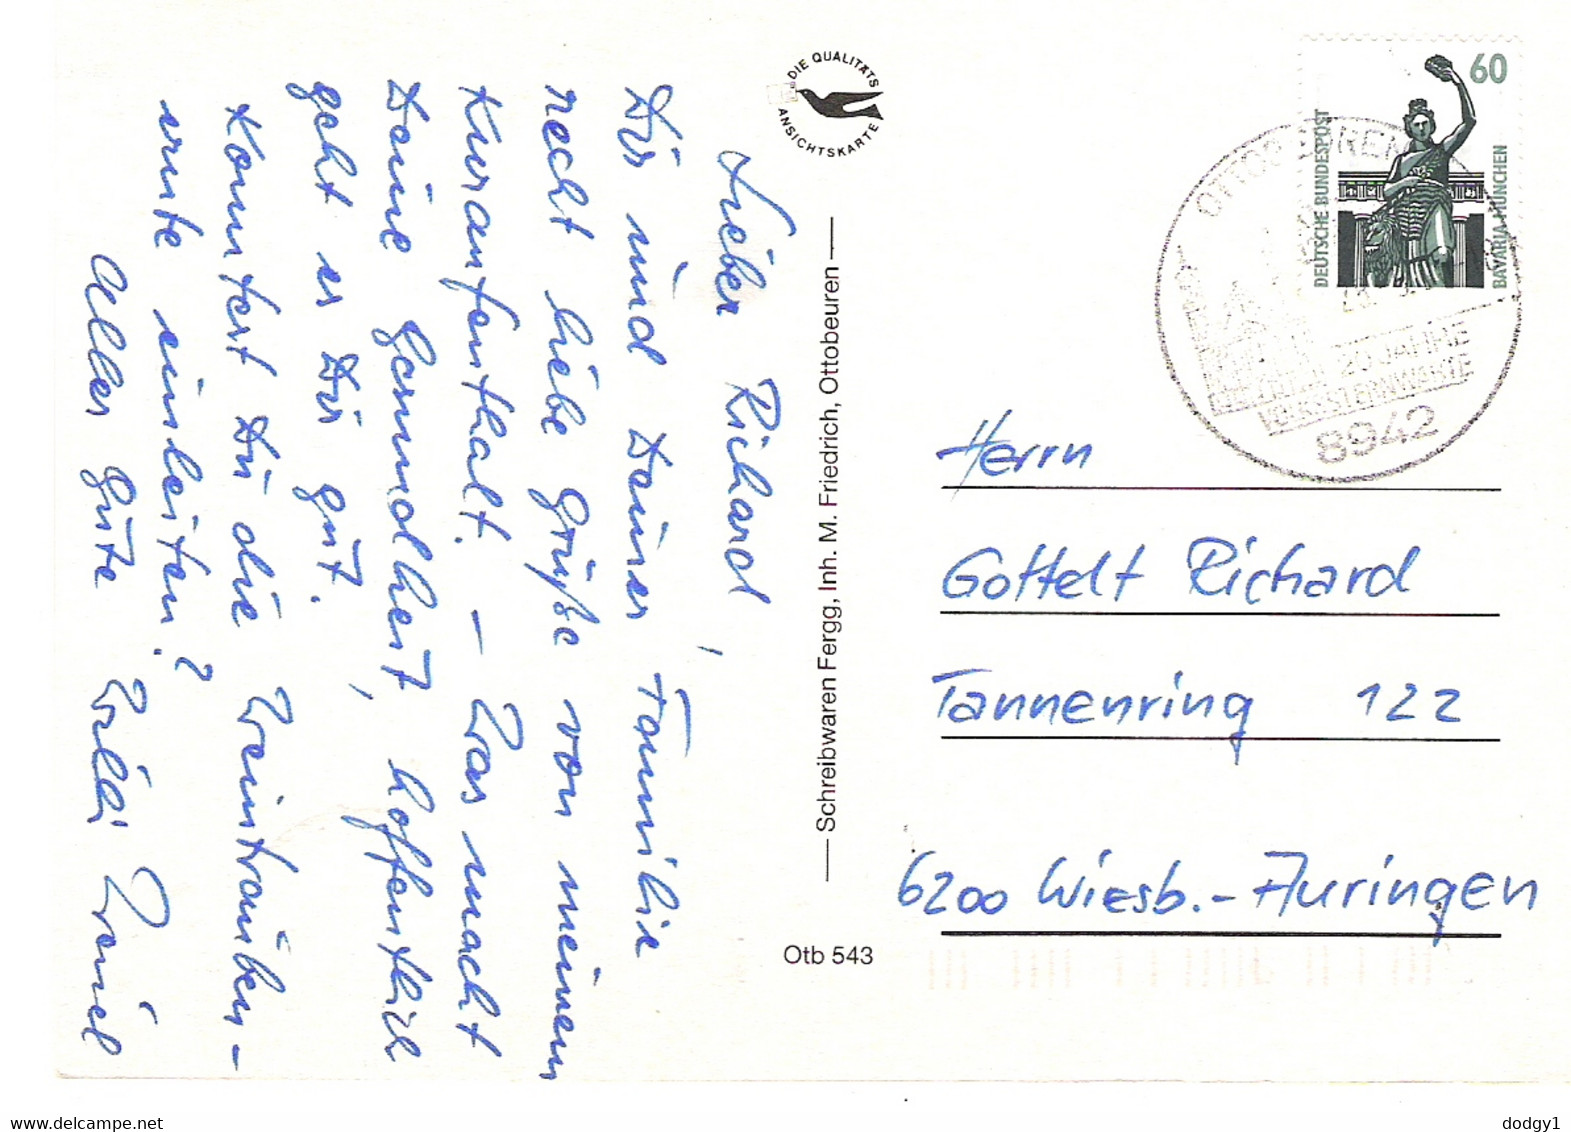 Lieber Richard,
Dir und Deiner Familie
recht liebe Grüße von meinem
Kuraufenthalt. – Was macht
Deine Gesundheit, hoffentlich
geht es Dir gut.
Konntest Du die Weintrauben-
ernte einleiten?
Alles Gute Willi
DIE QUALITÄTS
ANSICHTSKARTE
Schreibwaren Fergg, Inh. M. Friedrich, Ottobeuren
Otb 543
60
DEUTSCHE BUNDESPOST
BAVARIA MÜNCHEN
OTTOBEUREN
20 JAHRE
VOLKSSTERNWARTE
8942
Herrn
Gottelt Richard
Tannenring 122
6200 Wiesb.-Auringen
www.delcampe.net
dodgy1